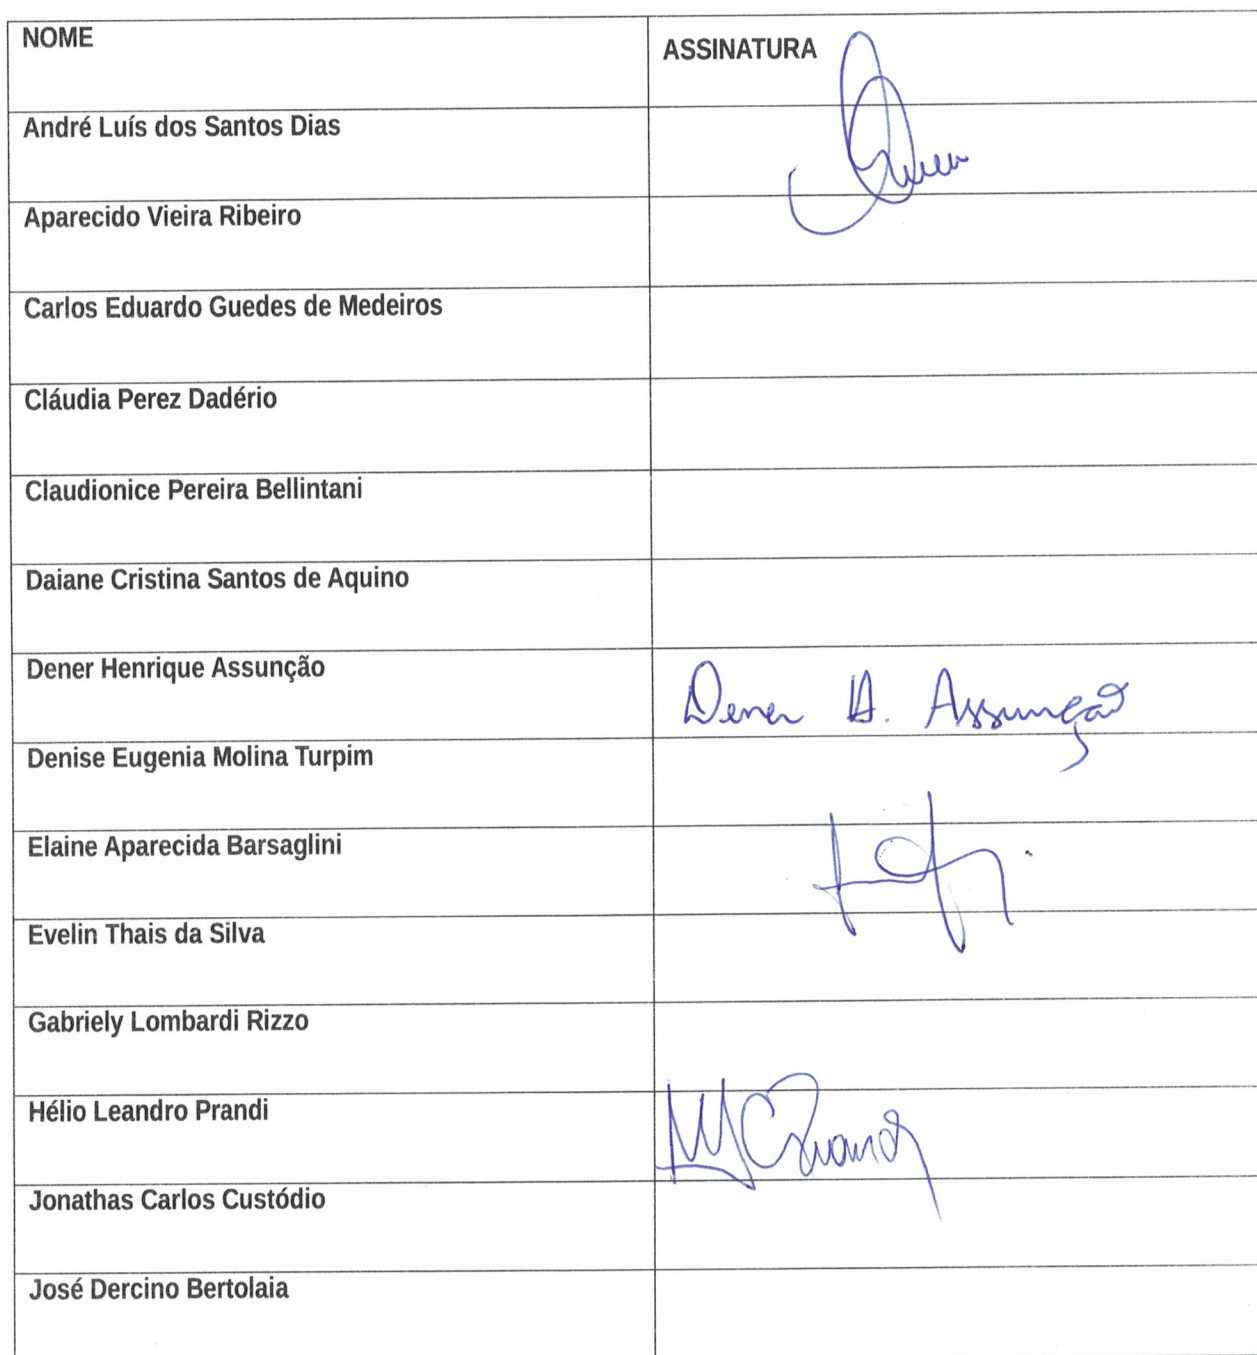 NOME
ASSINATURA
André Luís dos Santos Dias
Aparecido Vieira Ribeiro
Carlos Eduardo Guedes de Medeiros
Cláudia Perez Dadério
Claudionice Pereira Bellintani
Daiane Cristina Santos de Aquino
Dener Henrique Assunção
Dener H. Assunção
Denise Eugenia Molina Turpim
Elaine Aparecida Barsaglini
Evelin Thais da Silva
Gabriely Lombardi Rizzo
Hélio Leandro Prandi
Jonathas Carlos Custódio
José Dercino Bertolaia